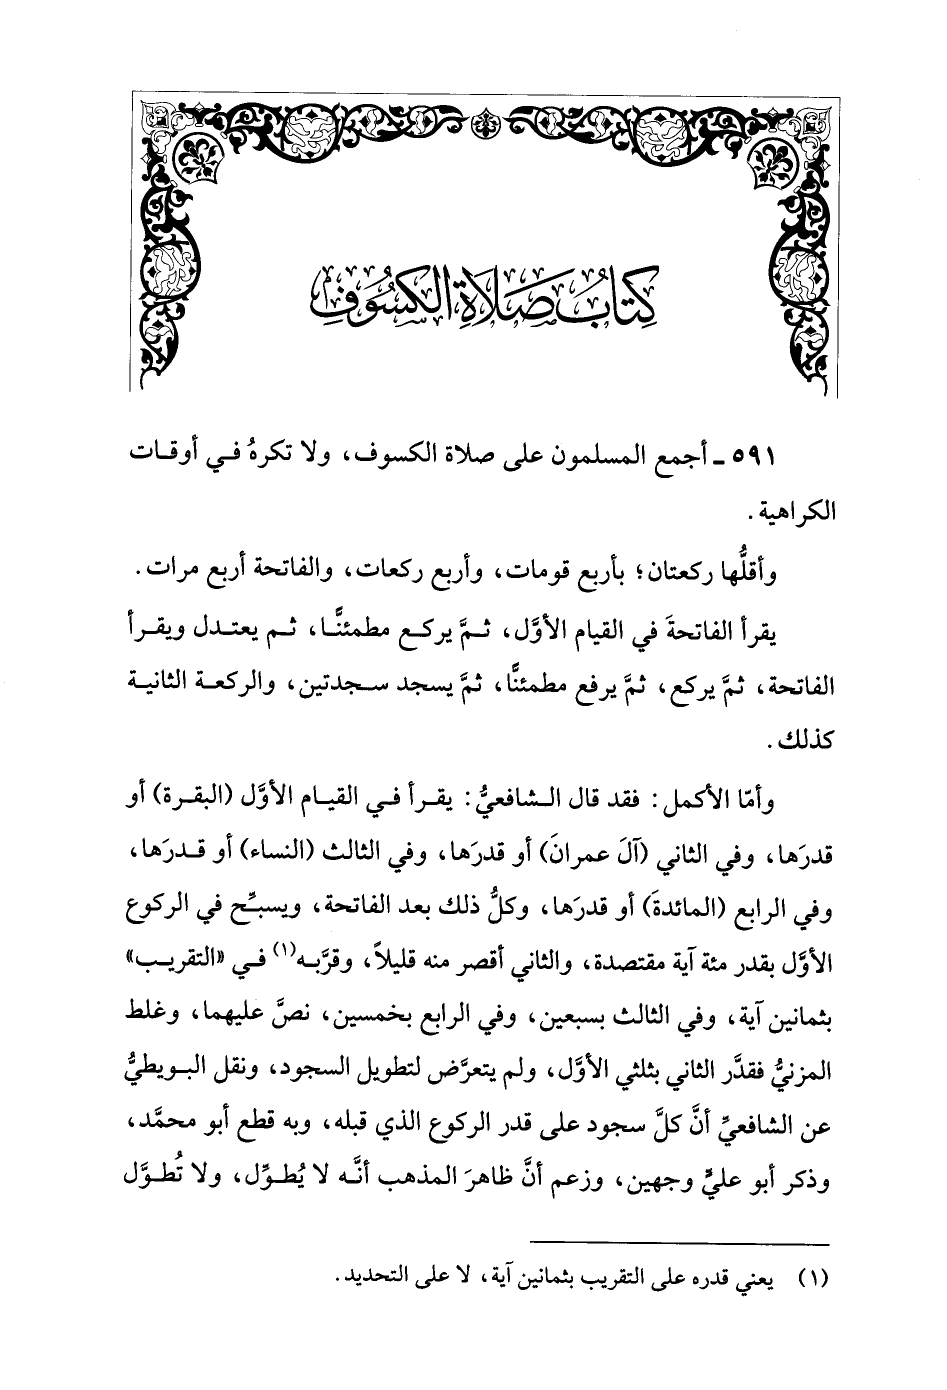 كِتَابُ صَلَاةِ الكُسُوفِ
٥٩١ ـ أجمع المسلمون على صلاة الكسوف، ولا تكرهُ في أوقات
الكراهية.
وأقلُّها ركعتان؛ بأربع قومات، وأربع ركعات، والفاتحة أربع مرات.
يقرأ الفاتحةَ في القيام الأوَّل، ثمَّ يركع مطمئنًّا، ثم يعتدل ويقرأ
الفاتحة، ثمَّ يركع، ثمَّ يرفع مطمئنًّا، ثمَّ يسجد سجدتين، والركعة الثانية
كذلك.
وأمّا الأكمل: فقد قال الشافعيُّ: يقرأ في القيام الأوَّل (البقرة) أو
قدرَها، وفي الثاني (آلَ عمرانَ) أو قدرَها، وفي الثالث (النساء) أو قدرَها،
وفي الرابع (المائدةَ) أو قدرَها، وكلُّ ذلك بعد الفاتحة، ويسبِّح في الركوع
الأوَّل بقدر مئة آية مقتصدة، والثاني أقصر منه قليلاً، وقرَّبه(١) في «التقريب»
بثمانين آية، وفي الثالث بسبعين، وفي الرابع بخمسين، نصَّ عليهما، وغلط
المزنيُّ فقدَّر الثاني بثلثي الأوَّل، ولم يتعرَّض لتطويل السجود، ونقل البويطيُّ
عن الشافعيِّ أنَّ كلَّ سجود على قدر الركوع الذي قبله، وبه قطع أبو محمَّد،
وذكر أبو عليٍّ وجهين، وزعم أنَّ ظاهرَ المذهب أنَّه لا يُطوِّل، ولا تُطوَّل
(١) يعني قدره على التقريب بثمانين آية، لا على التحديد.